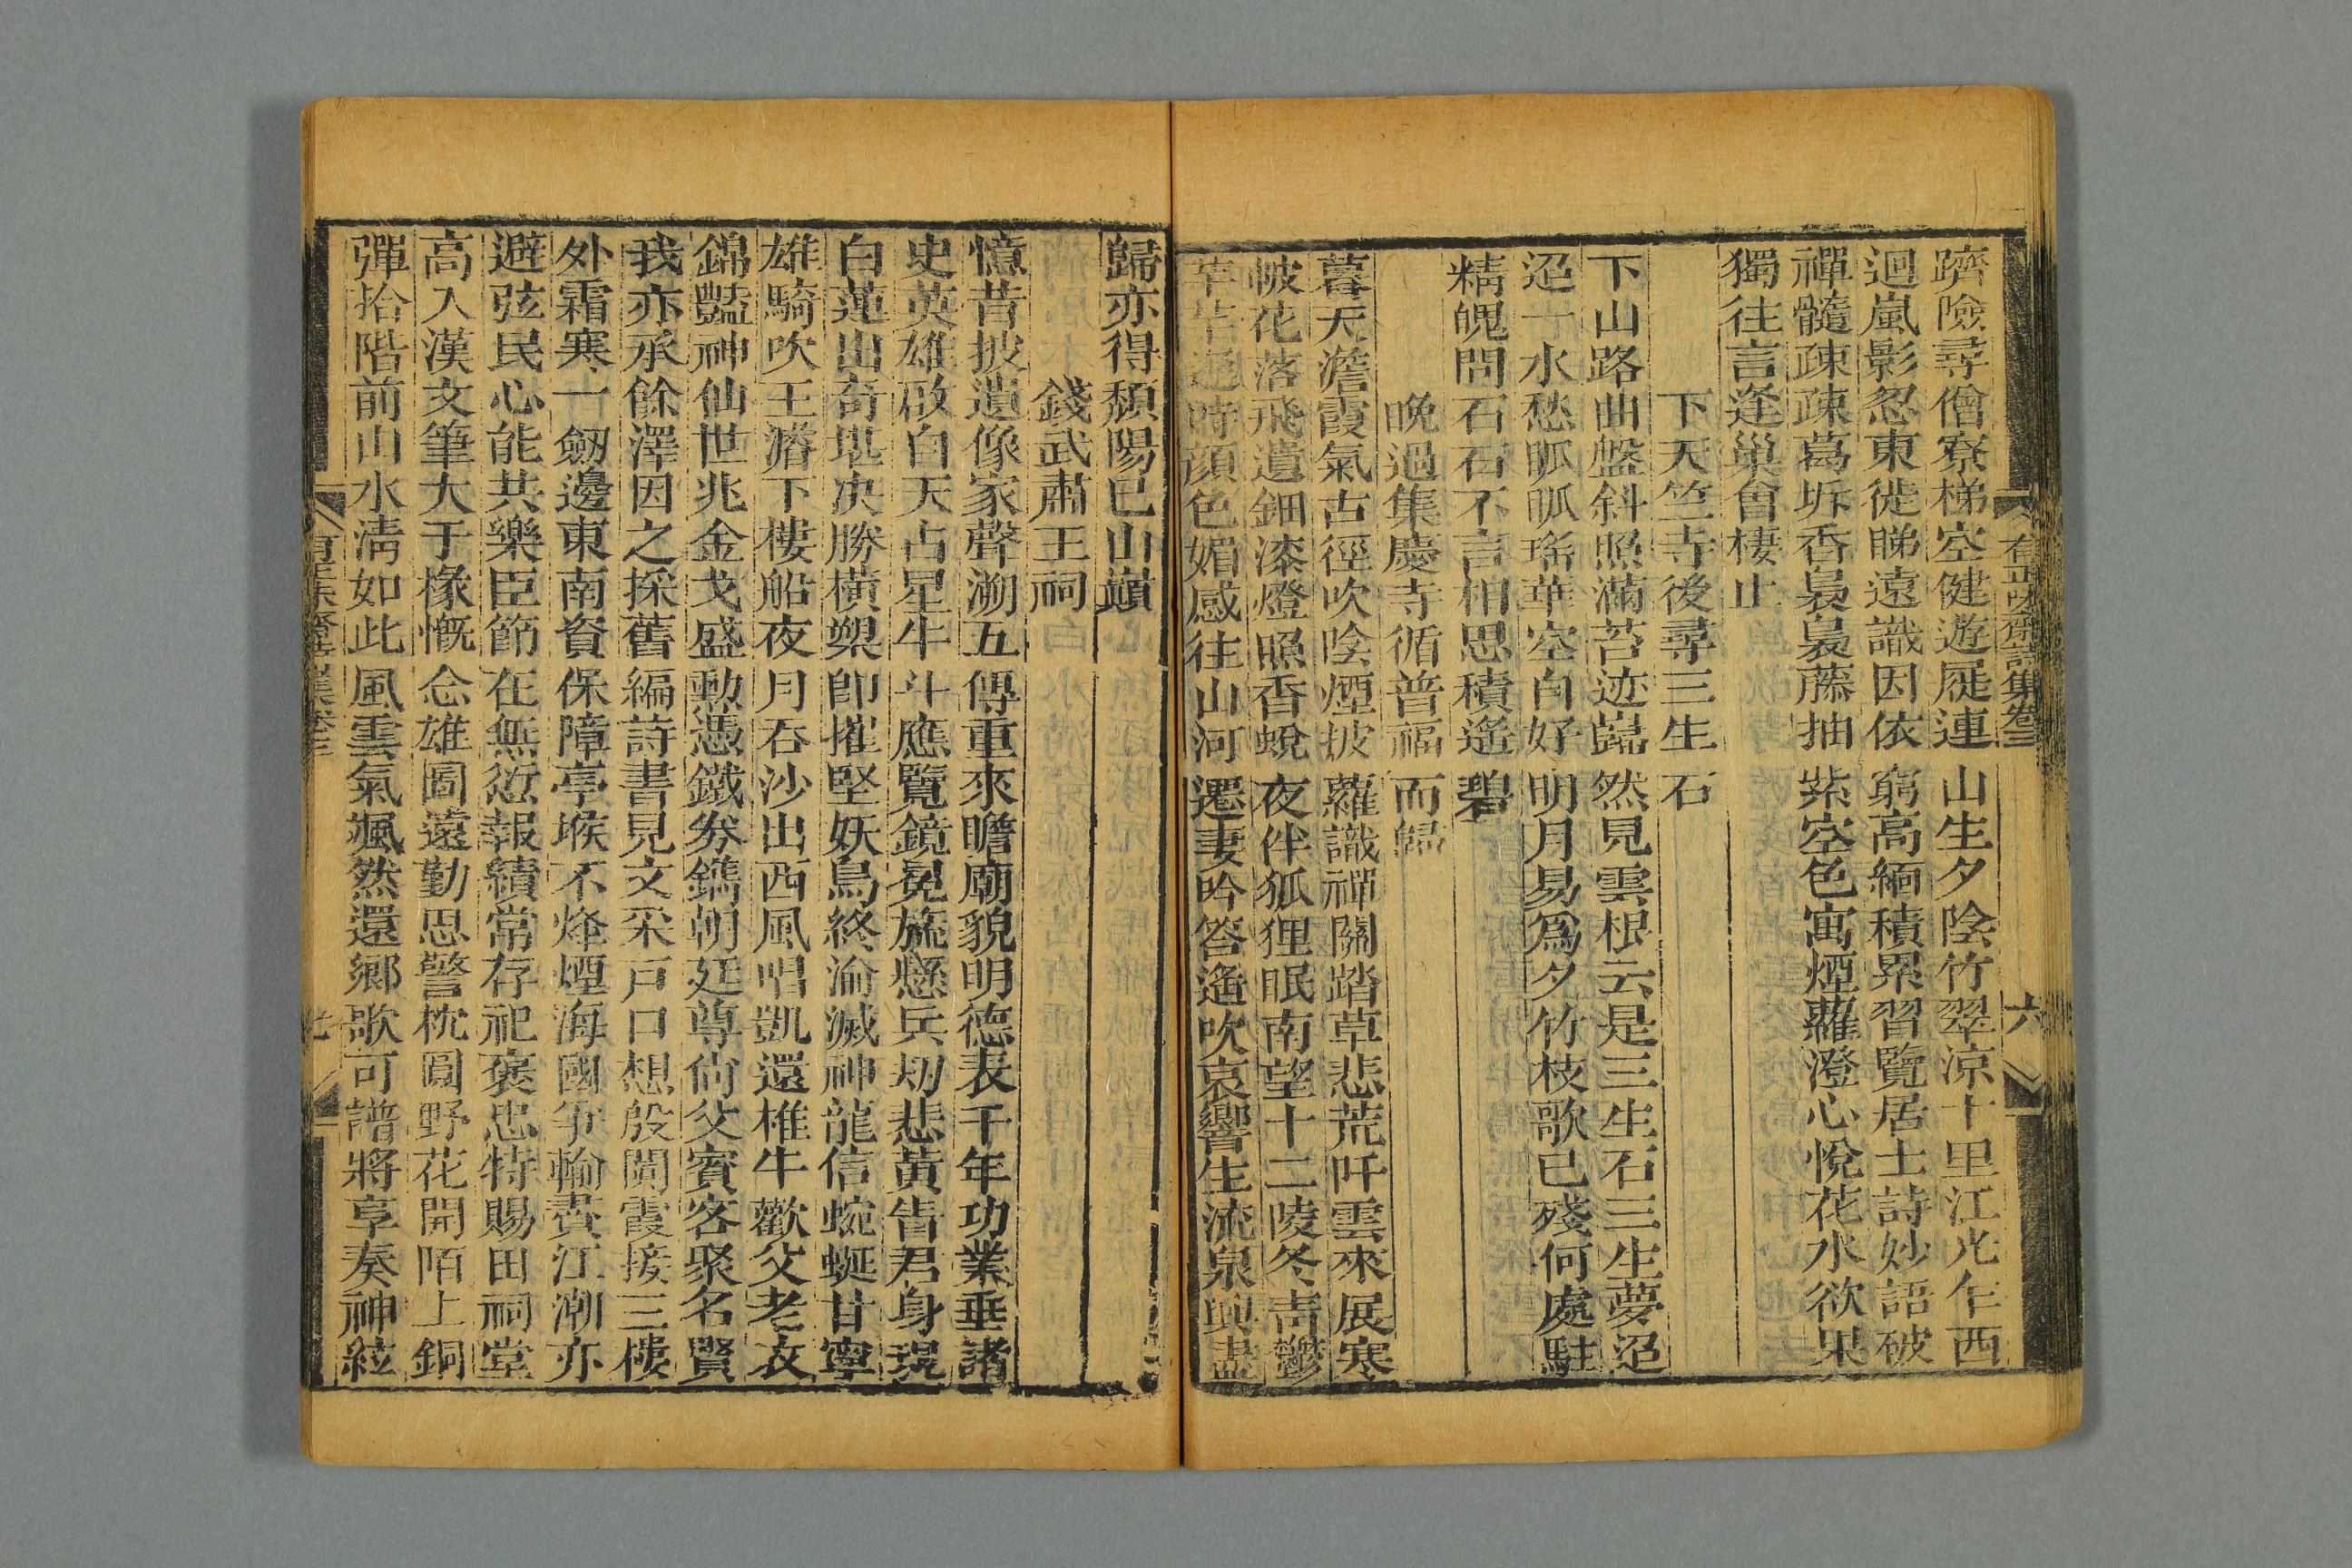 有正味齋詩集卷三
六
躋險尋僧寮梯空健遊屐連山生夕陰竹翠涼十里江光乍西
迴嵐影忽東徙睇遠識因依窮高緬積累習覽居士詩妙語破
禪髓疎疎葛坼香裊裊藤抽紫空色寓煙蘿澄心悅花水欲果
獨往言逢巢會棲止
下天竺寺後尋三生石
下山路曲盤斜照滿苔迹巋然見雲根云是三生石三生夢迢
迢一水愁眽眽瑤華空自好明月易爲夕竹枝歌已殘何處駐
精魄問石石不言相思積遙碧
晚過集慶寺循普福而歸
暮天澹霞氣古徑吹陰煙披蘿識禪關踏草悲荒阡雲來展寒
帔花落飛遺鈿漆燈照香蛻夜伴狐狸眠南望十二陵冬青鬱
芊芊遥時顔色媚感往山河遷妻吟答遙吹哀響生流泉興盡
歸亦得頽陽已山巔
錢武肅王祠
憶昔披遺像家聲溯五傳重來瞻廟貌明德表千年功業垂諸
史英雄啟自天占星牛斗應覽鏡冕旒懸兵刼悲黃眚君身現
白蓮出奇堪决勝橫槊卽摧堅妖鳥終淪滅神龍信蜿蜒甘寧
雄騎吹王濬下樓船夜月吞沙出西風唱凱還椎牛歡父老衣
錦豔神仙世兆金戈盛勲憑鐵劵鐫朝廷尊尙父賓客聚名賢
我亦承餘澤因之採舊編詩書見文采戸口想殷闐霞接三樓
外霜寒一劒邊東南資保障亭堠不烽煙海國爭輸賮江潮亦
避弦民心能共樂臣節在無愆報績常存祀褒忠特賜田祠堂
高入漢文筆大于椽慨念雄圖遠勤思警枕圓野花開陌上銅
彈拾階前山水淸如此風雲氣颯然還鄉歌可譜將享奏神絃